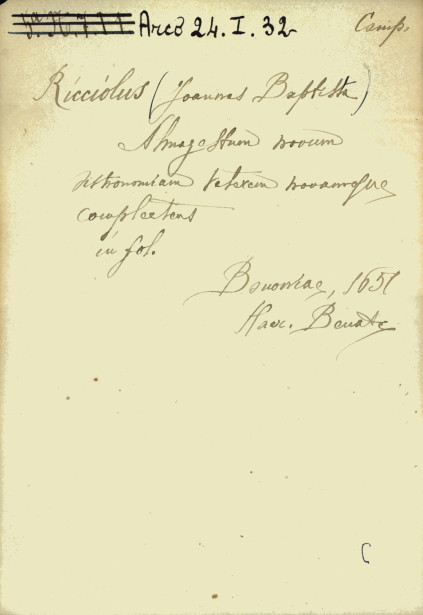 Arco 24.I.32
Camp.
Ricciolus (Joannes Baptista)
Almagestum novum
astronomiam veterem novamque
complectens
in fol.
Bononiae, 1651
Haer. Benatc
C